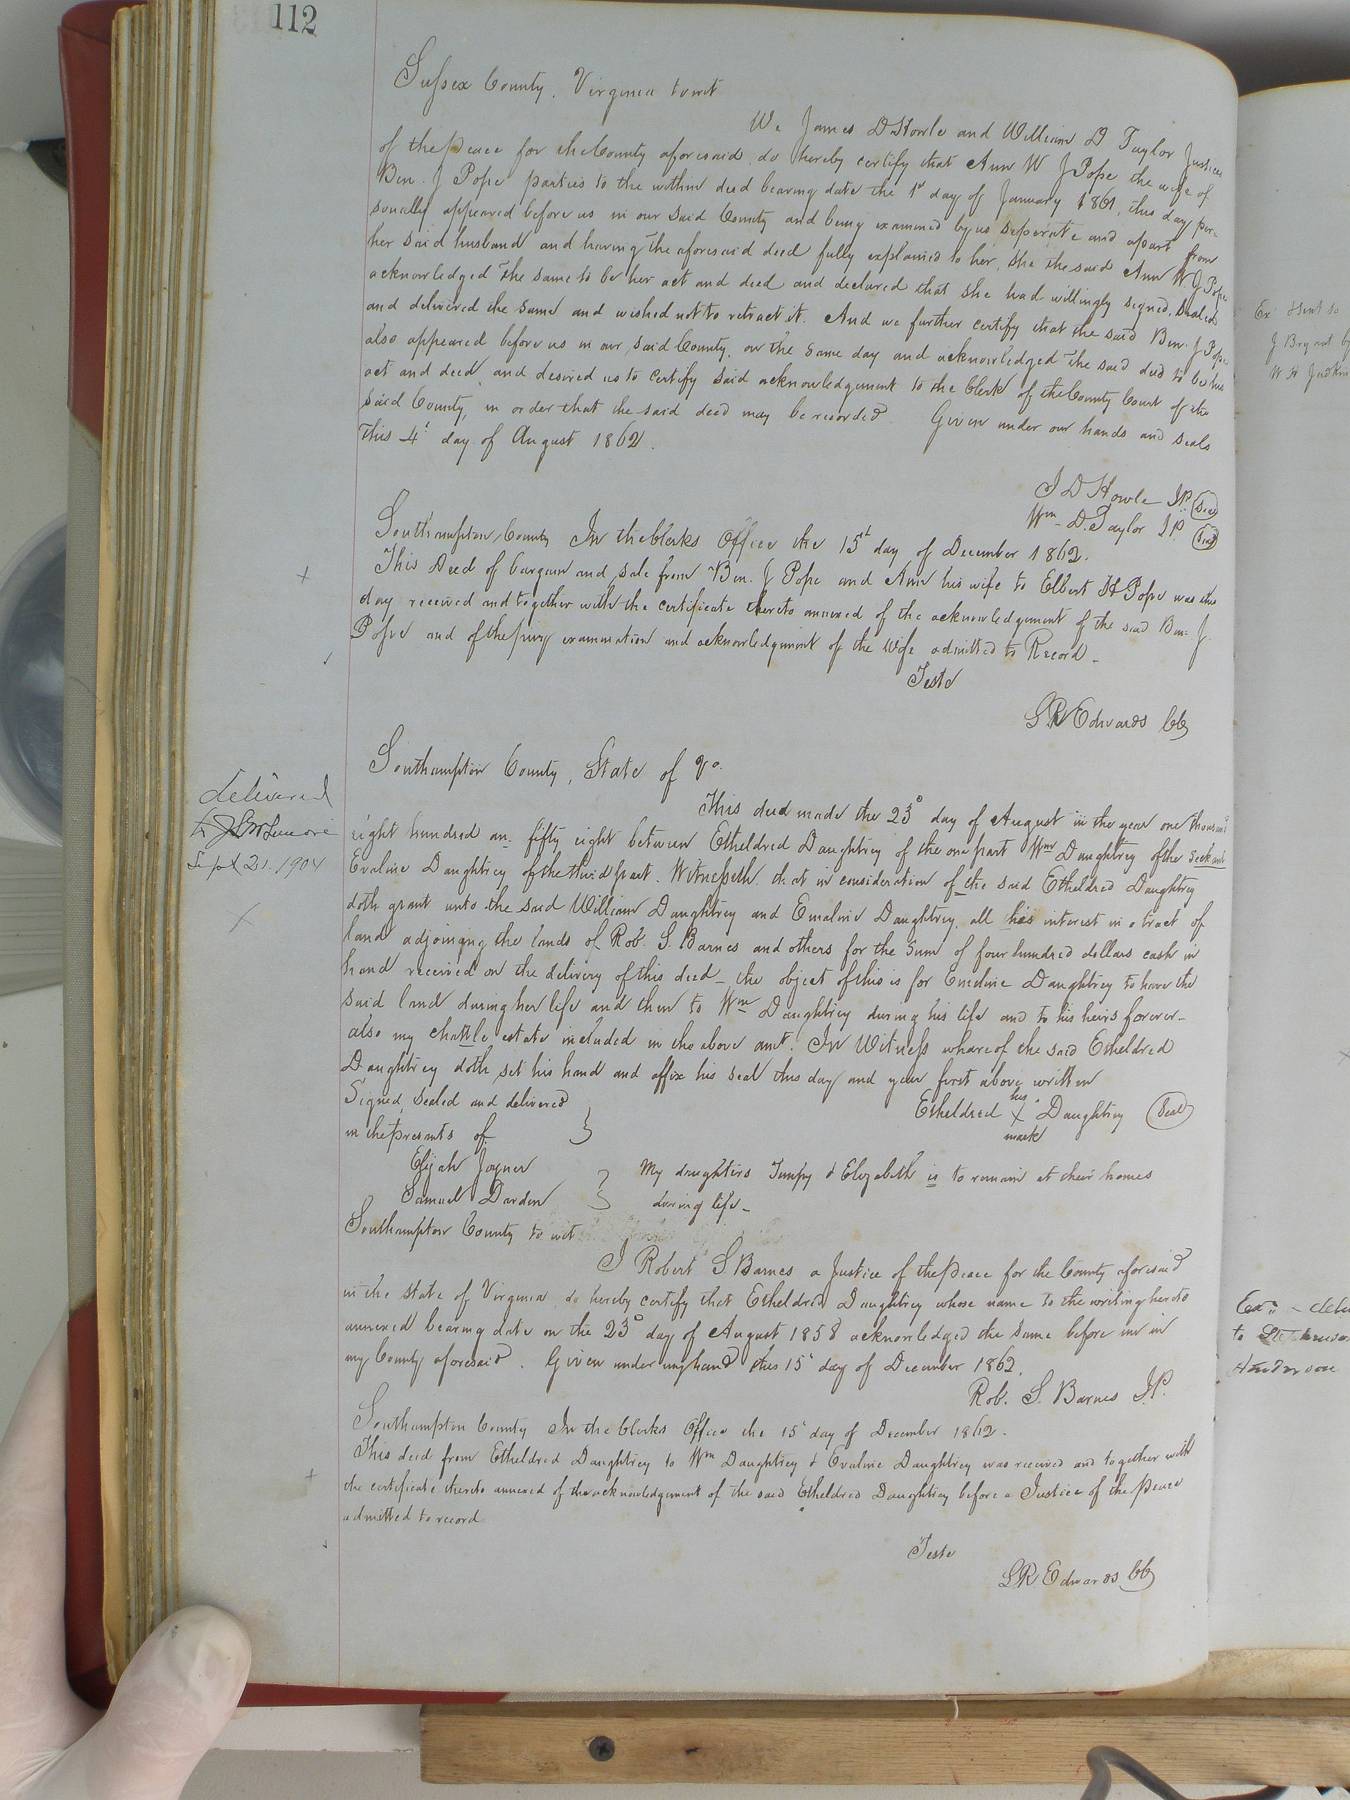 112
Sussex County, Virginia to wit
We James D Howle and William D Taylor Justices
of the peace for the County aforesaid, do hereby certify that Ann W J Pope the wife of
Ben. J Pope parties to the within deed bearing date the 1st day of January 1861, this day per-
sonally appeared before us in our said County and being examined by us seperate and apart from
her said husband and having the aforesaid deed fully explained to her, she the said Ann W J Pope
acknowledged the same to be her act and deed and declared that she had willingly signed, sealed
and delivered the same and wished not to retract it. And we further certify that the said Ben. J. Pope
also appeared before us in our said County, on the same day and acknowledged the said deed to be his
act and deed, and desired us to certify said acknowledgement to the Clerk of the County Court of the
said County, in order that the said deed may be recorded. Given under our hands and seals
This 4th day of August 1862.
J D Howle JP. Seal
Wm D. Taylor JP Seal
Southampton County In the Clerks Office the 15th day of December 1862.
This Deed of bargain and sale from Ben. J Pope and Ann his wife to Elbert H Pope was this
day received and together with the certificate thereto annexed of the acknowledgement of the said Ben. J.
Pope and of the privy examination and acknowledgment of the wife admitted to Record -
Teste
L R Edwards CC
Southampton County, State of Va.
delivered
Sept 21. 1904
This deed made the 23d day of August in the year one thousand
eight hundred an fifty eight between Etheldred Daughtrey of the one part Wm Daughtrey of the second
Evaline Daughtrey of the third part. Witnesseth that in consideration of the said Etheldred Daughtrey
doth grant unto the said William Daughtrey and Emaline Daughtrey all his interest in a tract of
land adjoinging the lands of Rob. S. Barnes and others for the sum of four hundred dollars cash in
hand received on the delivery of this deed - the object of this is for Emeline Daughtrey to have the
said land during her life and then to Wm Daughtrey during his life and to his heirs forever -
also my chattle estate included in the above amt. In Witness whareof the said Etheldred
Daughtrey doth set his hand and affix his seal this day and year first above written
Signed, sealed and delivered
in the presents of
Etheldred his X mark Daughtrey Seal
Elijah Joyner
Samuel Darden
My daughters Tempy & Elizabeth is to remain at their homes
during life -
Southampton County to wit
I Robert S Barnes a Justice of the peace for the County aforesaid
in the State of Virginia do hereby certify that Etheldred Daughtrey whose name to the writing hereto
annexed bearing date on the 23d day of August 1858 acknowledged the same before me in
my County aforesaid. Given under my hand this 15th day of December 1862.
Rob. S. Barnes J.P.
Southampton County In the Clerks Office the 15th day of December 1862.
This deed from Etheldred Daughtrey to Wm Daughtrey & Evaline Daughtrey was received and together with
the certificate thereto annexed of the acknowledgement of the said Etheldred Daughtrey before a Justice of the peace
admitted to record
Teste
L R Edwards CC
Ex. sent to
J Bryant by